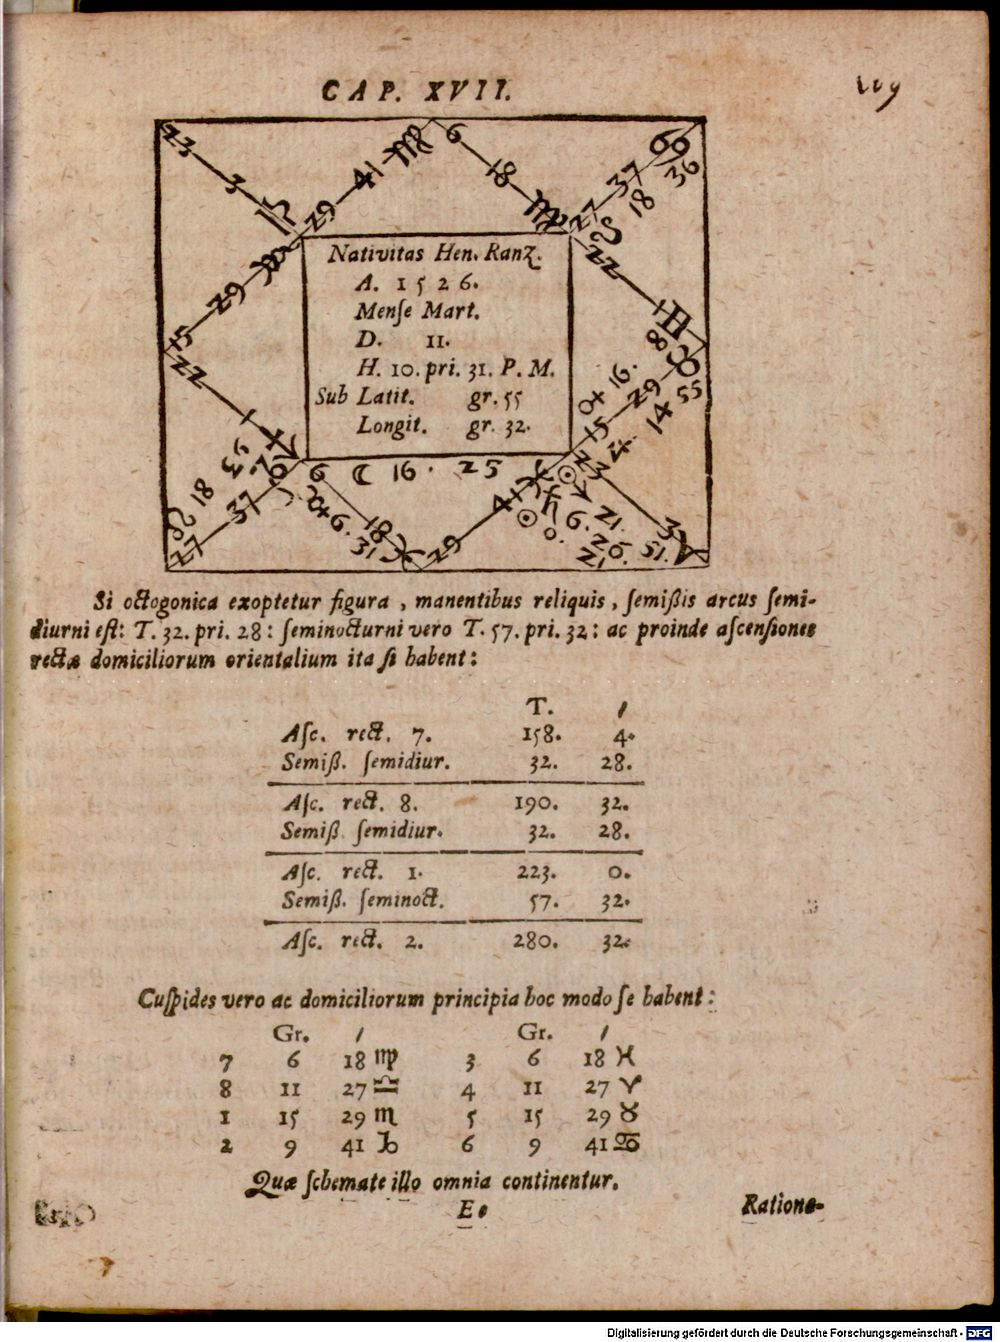 CAP. XVII.
109
23 3 ♎
29 41 ♍
6 18 ♍
27 37 ♋
18 36
♌
22 ♊
15 29 ♏
22 1 ♐
8 ♉
♀ 16.
15 29 55
♃ 14
53
18
27 37 ♑
6 ☾ 16. 25
☿ 6. 31
18 ♓
29 41
☉ 0. 21
♄ 6. 26.
☊ 21. 51.
23 3 ♈
Nativitas Hen. Ranz.
A. 1526.
Menſe Mart.
D. 11.
H. 10. pri. 31. P. M.
Sub Latit. gr. 55
Longit. gr. 32.
Si octogonica exoptetur figura, manentibus reliquis, ſemiſsis arcus ſemi-
diurni eſt: T. 32. pri. 28: ſeminocturni vero T. 57. pri. 32: ac proinde aſcenſiones
rectæ domiciliorum orientalium ita ſe habent:
T. /
Aſc. rect. 7. 158. 4.
Semiß. ſemidiur. 32. 28.
Aſc. rect. 8. 190. 32.
Semiß. ſemidiur. 32. 28.
Aſc. rect. 1. 223. 0.
Semiß. ſeminoct. 57. 32.
Aſc. rect. 2. 280. 32.
Cuſpides vero ac domiciliorum principia hoc modo ſe habent:
Gr. / Gr. /
7 6 18 ♍ 3 6 18 ♓
8 11 27 ♎ 4 11 27 ♈
1 15 29 ♏ 5 15 29 ♉
2 9 41 ♑ 6 9 41 ♋
Quæ ſchemate illo omnia continentur.
Ee Ratione-
Digitalisierung gefördert durch die Deutsche Forschungsgemeinschaft - DFG